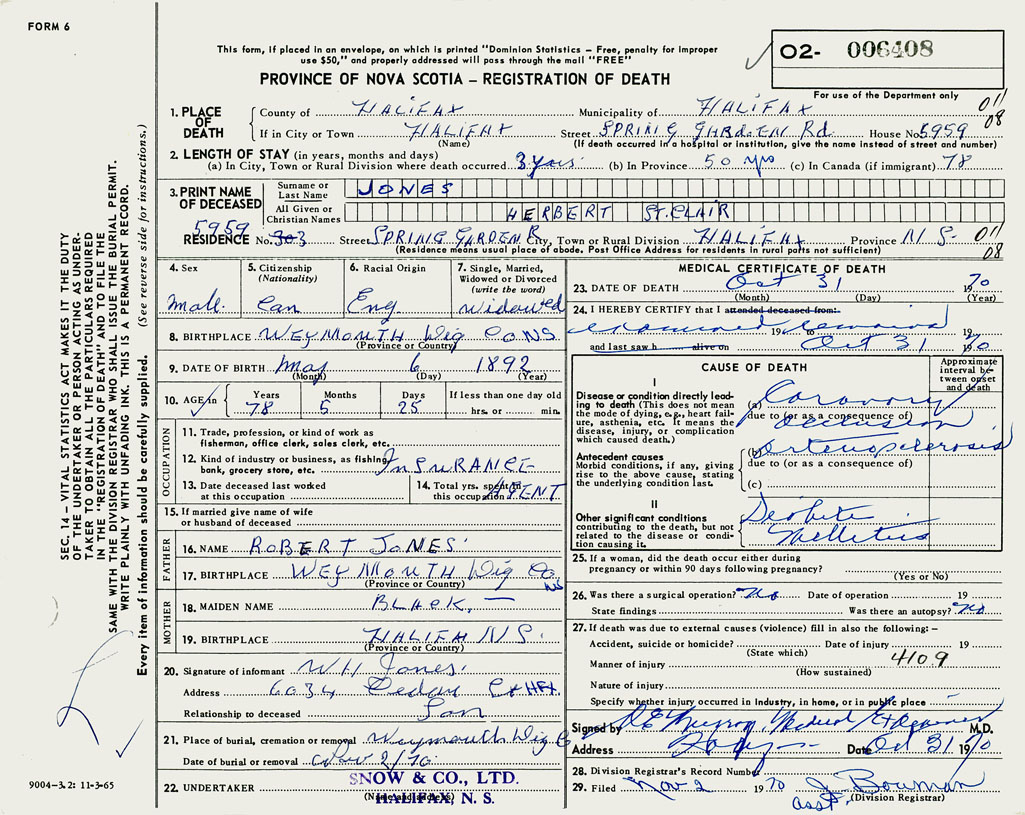 FORM 6
This form, if placed in an envelope, on which is printed "Dominion Statistics – Free, penalty for improper
use $50," and properly addressed will pass through the mail "FREE"
PROVINCE OF NOVA SCOTIA – REGISTRATION OF DEATH
02- 006408
For use of the Department only
011
08
1. PLACE OF DEATH
County of HALIFAX Municipality of HALIFAX
If in City or Town HALIFAX Street SPRING GARDEN Rd House No. 5959
(Name) (If death occurred in a hospital or institution, give the name instead of street and number)
2. LENGTH OF STAY (in years, months and days)
(a) In City, Town or Rural Division where death occurred 3 years (b) In Province 50 yrs (c) In Canada (if immigrant) 78
3. PRINT NAME OF DECEASED
Surname or Last Name JONES
All Given or Christian Names HERBERT ST. CLAIR
5959
RESIDENCE No. 303 Street SPRING GARDEN R City, Town or Rural Division HALIFAX Province N.S. 011
08
(Residence means usual place of abode. Post Office Address for residents in rural parts not sufficient)
4. Sex
Male
5. Citizenship (Nationality)
Can
6. Racial Origin
Eng
7. Single, Married, Widowed or Divorced (write the word)
Widowed
8. BIRTHPLACE WEYMOUTH Dig Co NS
(Province or Country)
9. DATE OF BIRTH May 6 1892
(Month) (Day) (Year)
10. AGE in Years Months Days If less than one day old
78 5 25 hrs. or min.
OCCUPATION
11. Trade, profession, or kind of work as
fisherman, office clerk, sales clerk, etc.
12. Kind of industry or business, as fishing,
bank, grocery store, etc. INSURANCE
13. Date deceased last worked
at this occupation
14. Total yrs. spent in
this occupation AGENT
15. If married give name of wife
or husband of deceased
FATHER
16. NAME ROBERT JONES
17. BIRTHPLACE WEYMOUTH Dig Co NS
(Province or Country)
MOTHER
18. MAIDEN NAME BLACK. —
19. BIRTHPLACE HALIFAX N.S.
(Province or Country)
20. Signature of informant W H Jones
Address 6034 Cedar St HFX.
Relationship to deceased Son
21. Place of burial, cremation or removal Weymouth Dig Co
Date of burial or removal Nov 2/70
22. UNDERTAKER SNOW & CO., LTD.
(Name and Address)
HALIFAX, N. S.
MEDICAL CERTIFICATE OF DEATH
23. DATE OF DEATH Oct 31 1970
(Month) (Day) (Year)
24. I HEREBY CERTIFY that I attended deceased from:
examined 19 remains 19
and last saw h alive on Oct 31 1970
CAUSE OF DEATH
Approximate interval between onset and death
I
Disease or condition directly leading
to death (This does not mean
the mode of dying, e.g., heart failure,
asthenia, etc. It means the
disease, injury, or complication
which caused death.)
(a) Coronary
due to (or as a consequence of)
occlusion
Antecedent causes
Morbid conditions, if any, giving
rise to the above cause, stating
the underlying condition last.
(b) Arteriosclerosis
due to (or as a consequence of)
(c)
II
Other significant conditions
contributing to the death, but not
related to the disease or condition
causing it.
Diabetes
Mellitus
25. If a woman, did the death occur either during
pregnancy or within 90 days following pregnancy?
(Yes or No)
26. Was there a surgical operation? No Date of operation 19
State findings Was there an autopsy? No
27. If death was due to external causes (violence) fill in also the following: –
Accident, suicide or homicide? Date of injury 19
(State which)
4109
Manner of injury
(How sustained)
Nature of injury
Specify whether injury occurred in Industry, in home, or in public place
Signed by Medical Examiner M.D.
Address Date Oct 31 1970
28. Division Registrar's Record Number
29. Filed Nov 2 1970 J. Bowman
asst. (Division Registrar)
SEC. 14 – VITAL STATISTICS ACT MAKES IT THE DUTY
OF THE UNDERTAKER OR PERSON ACTING AS UNDERTAKER
TO OBTAIN ALL THE PARTICULARS REQUIRED
IN THE "REGISTRATION OF DEATH" AND TO FILE THE
SAME WITH THE DIVISION REGISTRAR WHO SHALL ISSUE THE BURIAL PERMIT.
WRITE PLAINLY WITH UNFADING INK. THIS IS A PERMANENT RECORD.
Every item of information should be carefully supplied. (See reverse side for instructions.)
9004–3.2: 11-3-65